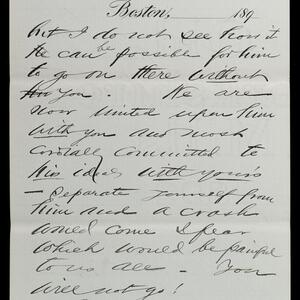 Boston, 189
but I do not see how it
he can be possible for him
to go on there without
you. We are
now united upon him
with you and most
cordially committed to
his ideas with yours
- Separate yourself from
him and a crash
would come I fear
which would be painful
to us all - You
will not go!